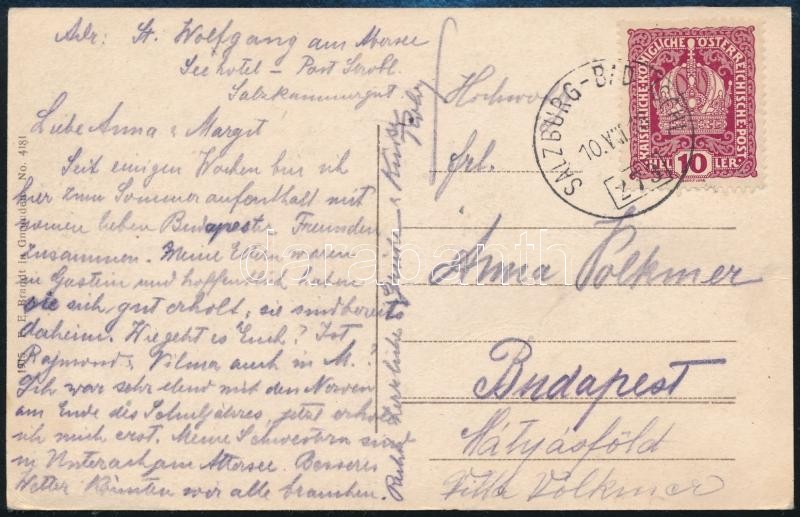 Adr: St. Wolfgang am Abersee
See hotel - Post Strobl.
Salzkammergut.
Liebe Anna & Margit
Seit einigen Wochen bin ich
hier zum Sommeraufenthalt mit
meinen lieben Budapester Freunden
zusammen. Meine Eltern waren
in Gastein und hoffentlich haben
sie sich gut erholt, sie sind bereits
daheim. Wie geht es Euch? Ist
Rajmond & Vilma auch in M.?
Ich war sehr elend mit den Nerven
am Ende des Schuljahres, jetzt erhole
ich mich erst. Meine Schwestern sind
in Unterach am Attersee. Besseres
Wetter könnten wir alle brauchen.
Recht herzliche Grüsse & Küsse
1915. F. E. Brandt in Gmunden. No. 4181
Hochwohl
Frl.
Anna Volkmer
Budapest
Mátyásföld
Villa Volkmer
KAISERLICHE KÖNIGLICHE ÖSTERREICHISCHE POST
HEL 10 LER
SALZBURG-
10.VII
darabanth